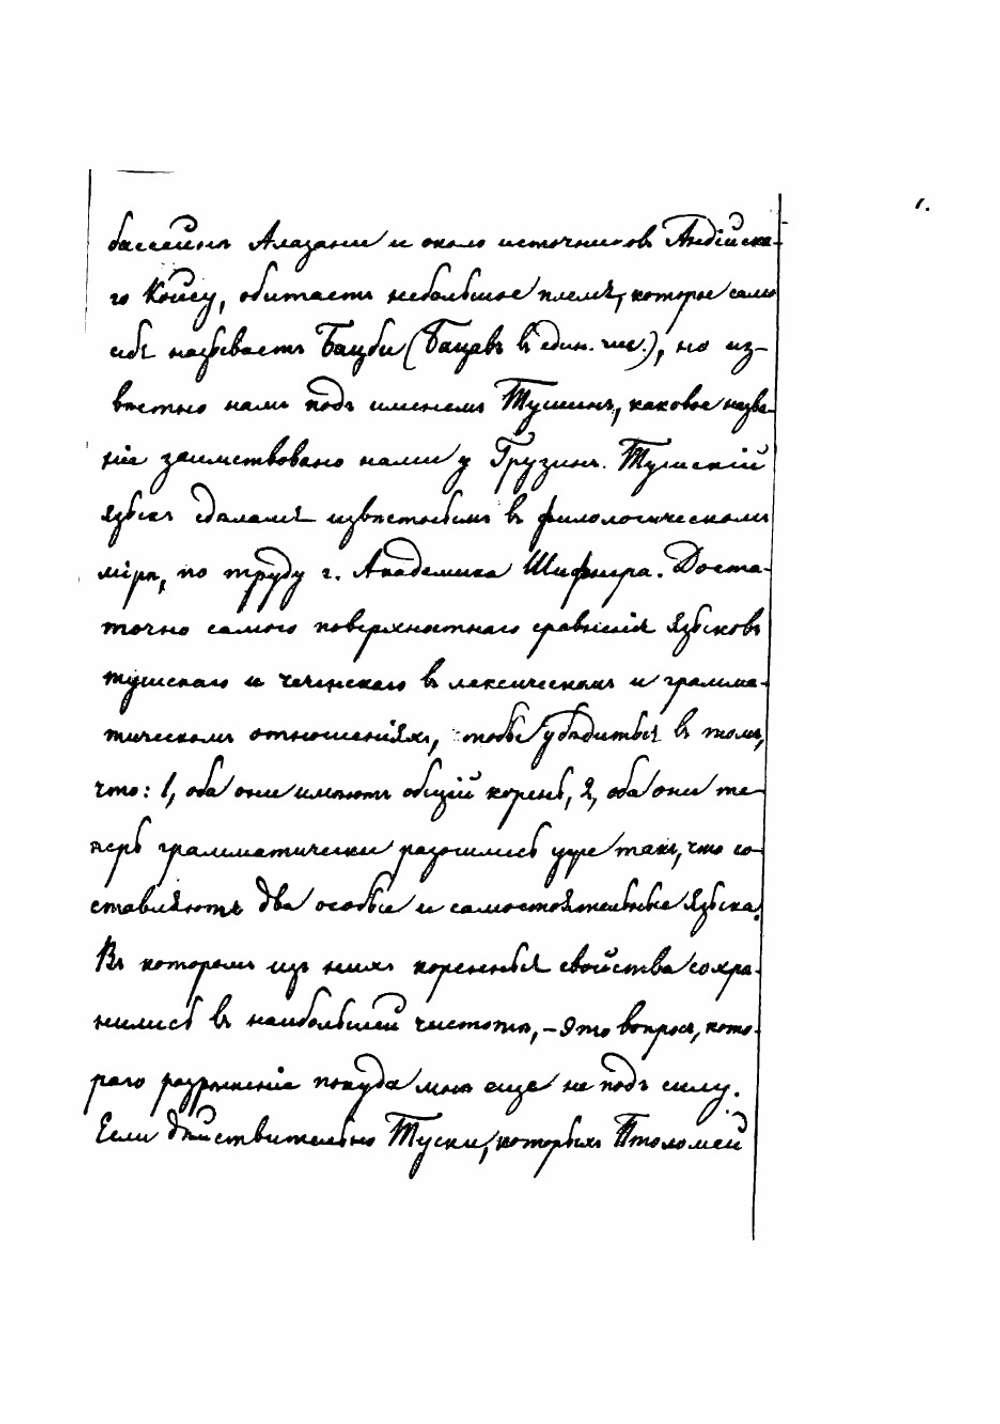 1.
бассейнѣ Алазани и около источниковъ Андійска-
го Койсу, обитаетъ небольшое племя, которое само
себя называетъ Бацби (Бацавъ въ един. чис.), но из-
вѣстно намъ подъ именемъ Тушинъ, каковое назва-
ніе заимствовано нами у Грузинъ. Тушскій
языкъ сдѣлался извѣстнымъ въ филологическомъ
мірѣ, по труду г. Академика Шифнера. Доста-
точно самого поверхностнаго сравненія языковъ
тушскаго и чеченскаго въ лексическомъ и грамма-
тическомъ отношеніяхъ, чтобы убѣдиться въ томъ,
что: 1, оба они имѣютъ общій корень, 2, оба они те-
перь грамматически разошлись уже такъ, что со-
ставляютъ два особые и самостоятельные языка.
Въ которомъ изъ нихъ коренныя свойства сохра-
нились въ наибольшей чистотѣ, – это вопросъ, кото-
раго разрѣшеніе покуда мнѣ еще не подъ силу.
Если дѣйствительно Туски, которыхъ Птоломей